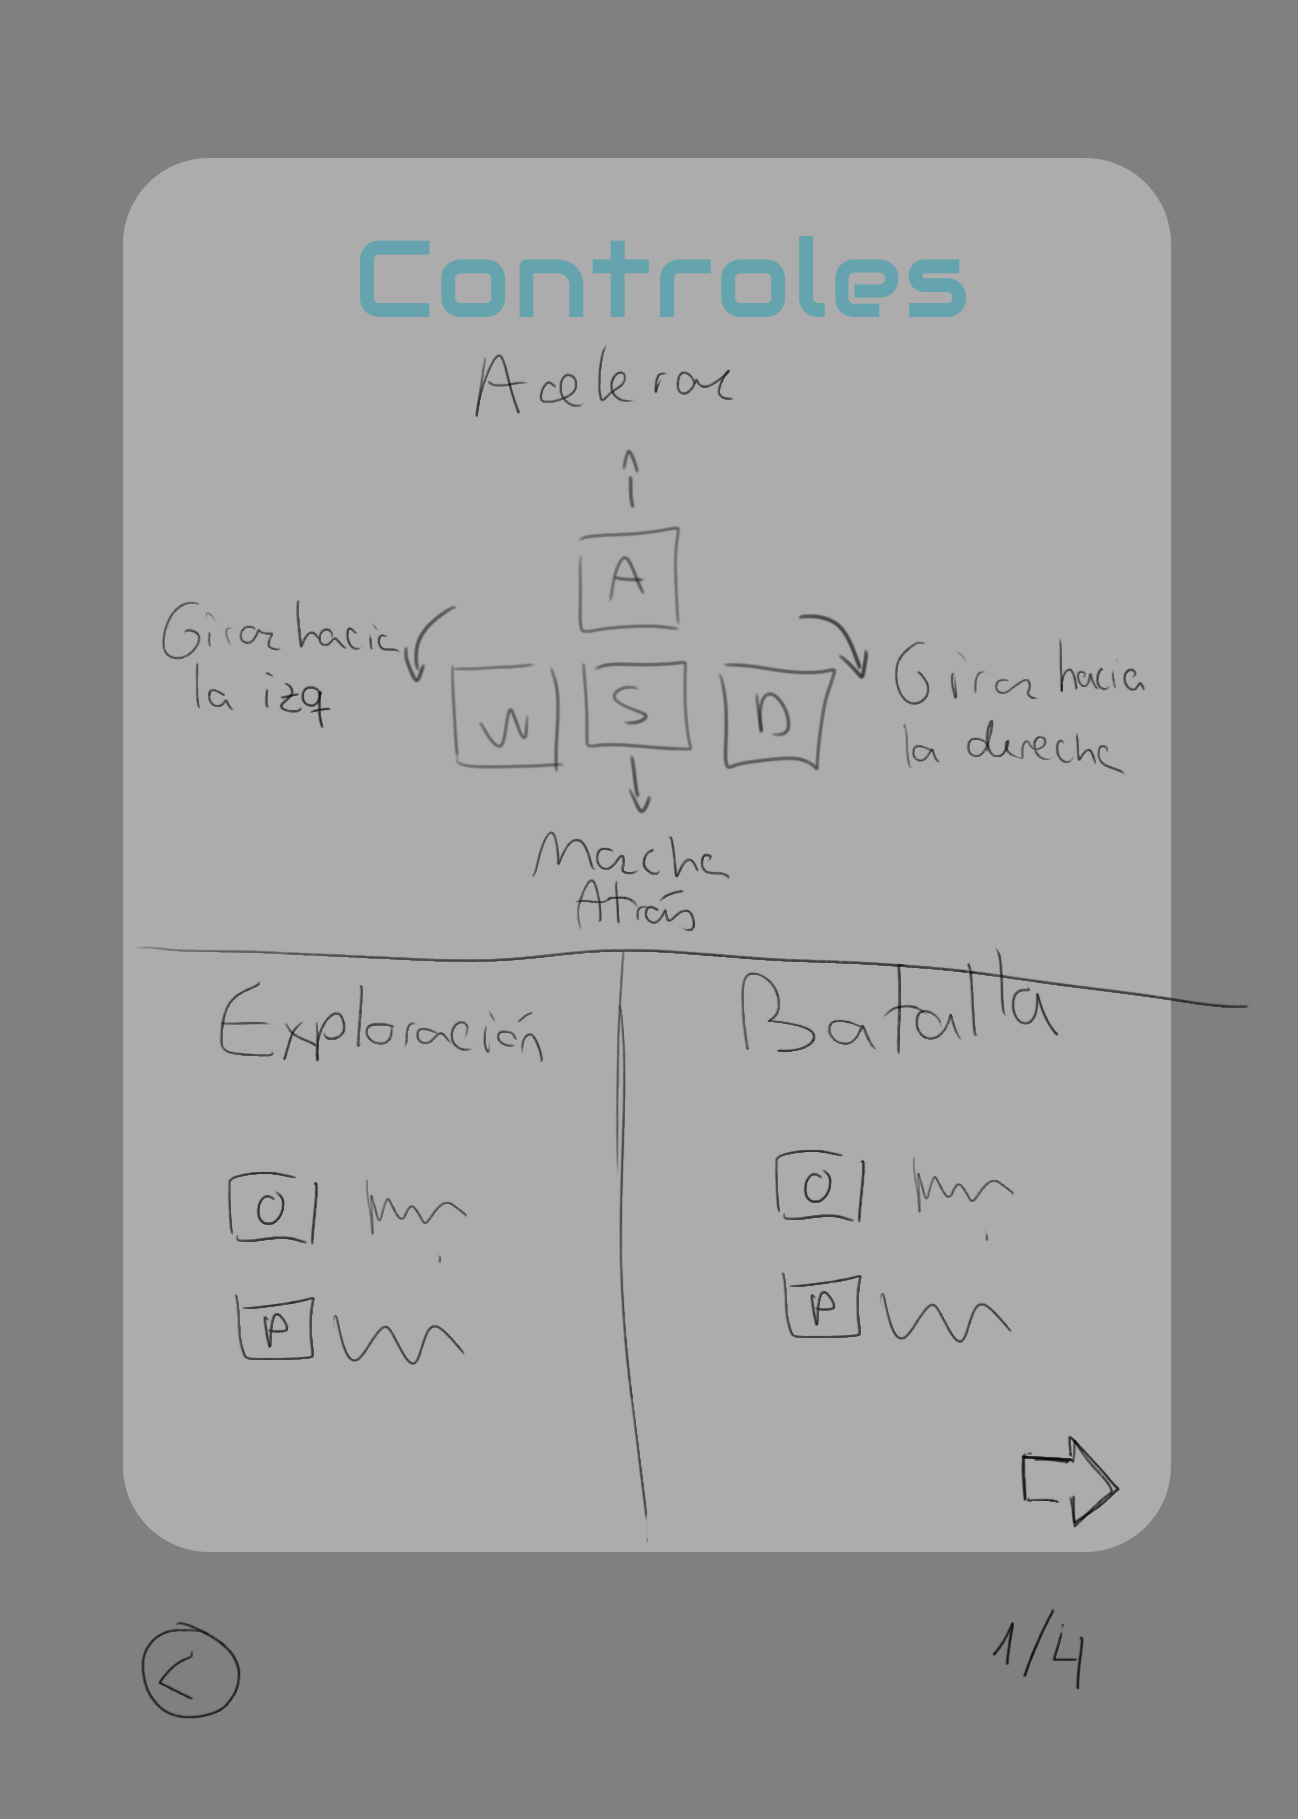 Controles
Acelerar
A
Girar hacia
la izq
W
S
D
Girar hacia
la derecha
Marcha
Atrás
Exploración
Batalla
O
O
P
P
<
1/4